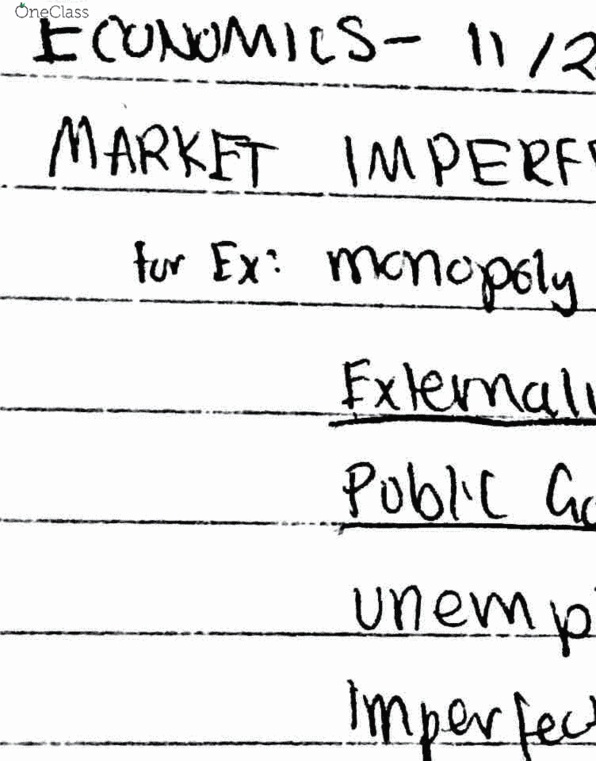 OneClass
ECONOMICS- 11/2
MARKET IMPERF
for Ex: monopoly
Externali
Public Go
unemp
Imperfec